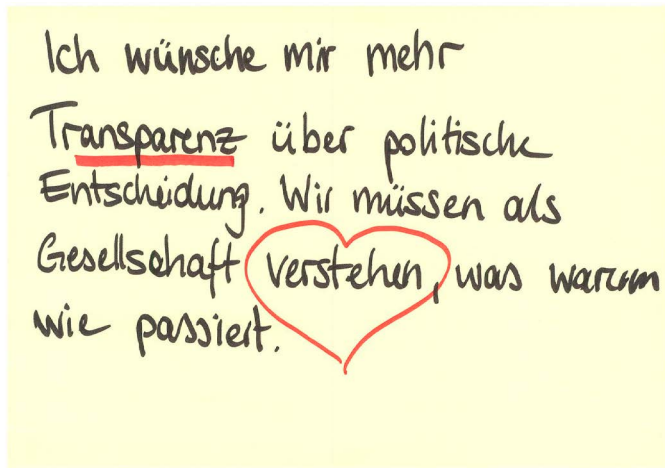 Ich wünsche mir mehr
Transparenz über politische
Entscheidung. Wir müssen als
Gesellschaft verstehen, was warum
wie passiert.